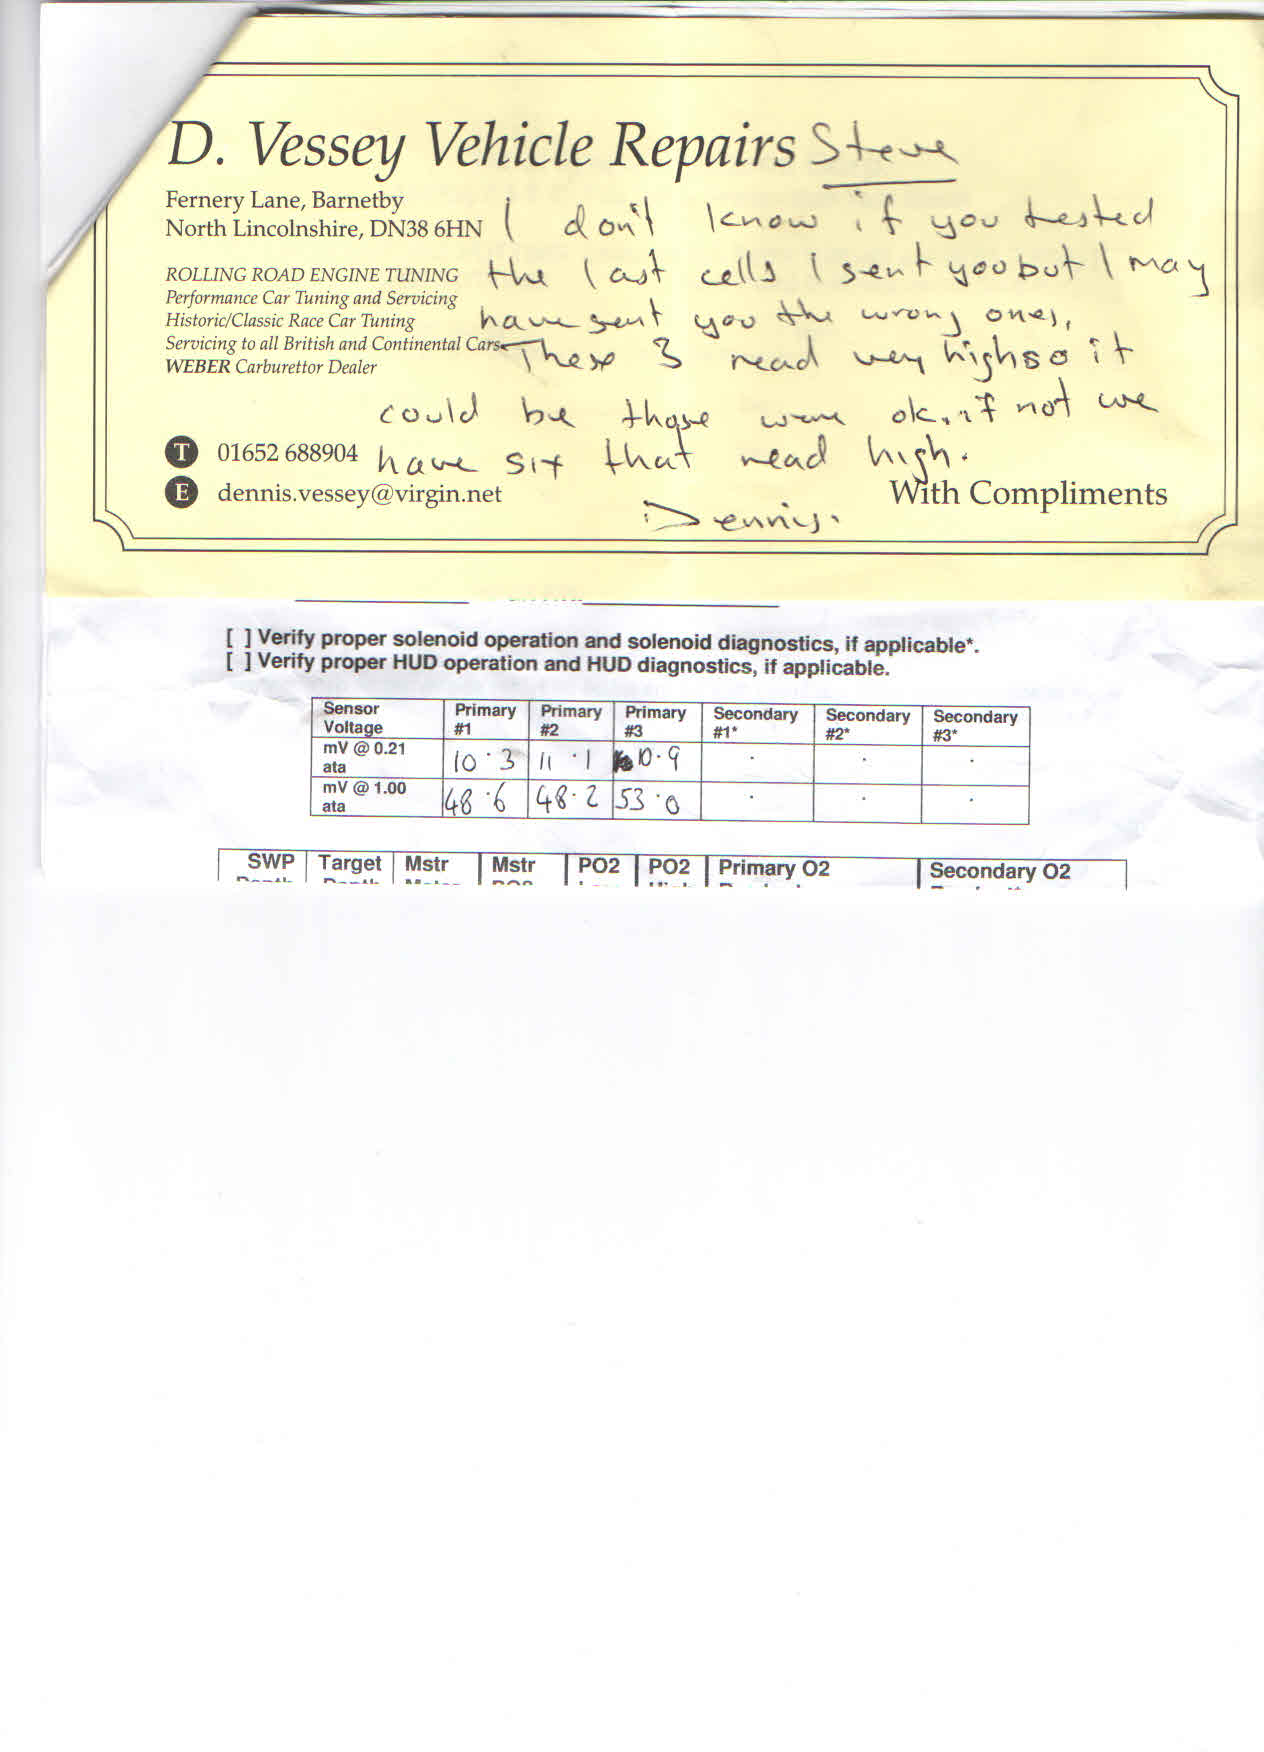 D. Vessey Vehicle Repairs Steve
Fernery Lane, Barnetby
North Lincolnshire, DN38 6HN I don't know if you tested
ROLLING ROAD ENGINE TUNING the last cells I sent you but I may
Performance Car Tuning and Servicing
Historic/Classic Race Car Tuning have sent you the wrong ones,
Servicing to all British and Continental Cars These 3 read very high so it
WEBER Carburettor Dealer
could be those were ok, if not we
T 01652 688904 have six that read high.
E dennis.vessey@virgin.net With Compliments
Dennis.
[ ] Verify proper solenoid operation and solenoid diagnostics, if applicable*.
[ ] Verify proper HUD operation and HUD diagnostics, if applicable.
Sensor Voltage Primary #1 Primary #2 Primary #3 Secondary #1* Secondary #2* Secondary #3*
mV @ 0.21 ata 10.3 11.1 10.9 . . .
mV @ 1.00 ata 48.6 48.2 53.0 . . .
SWP Target Mstr Mstr PO2 PO2 Primary O2 Secondary O2